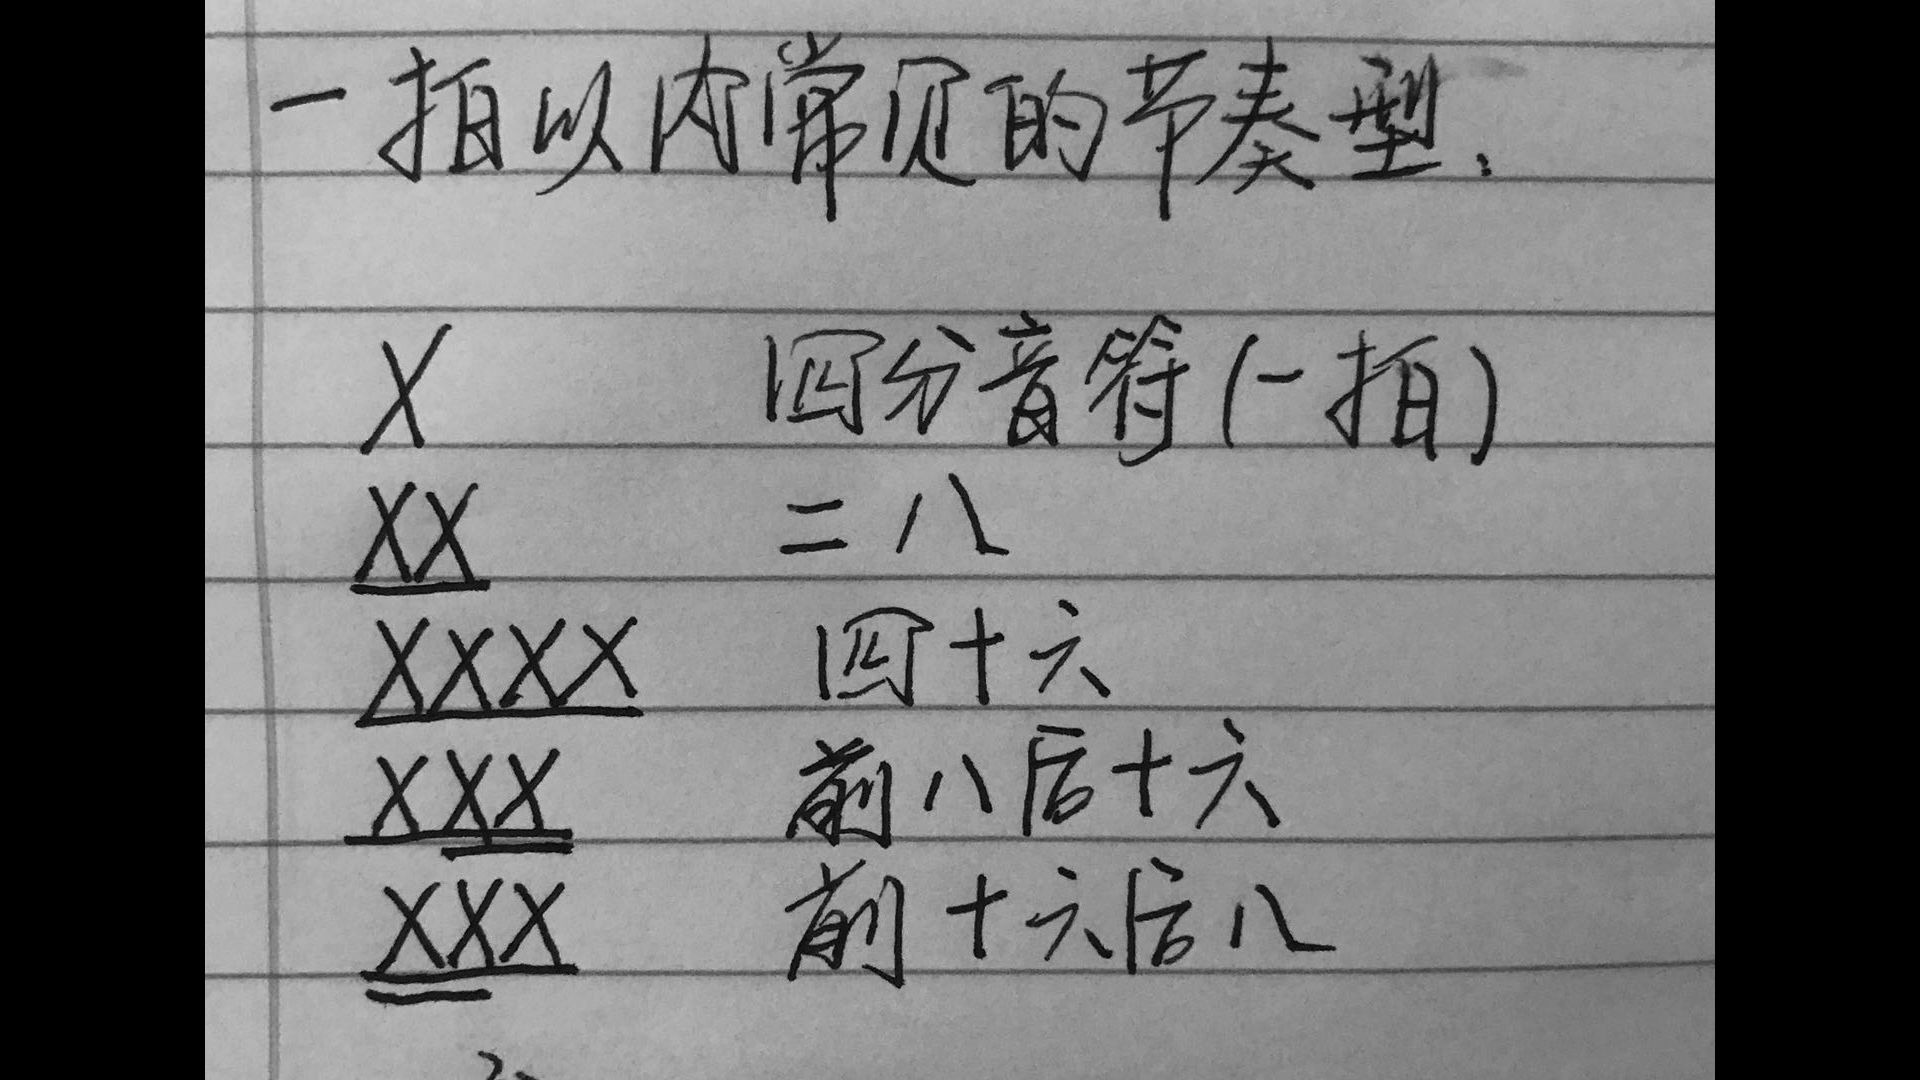 一拍以内常见的节奏型：
X 四分音符(一拍)
XX 二八
XXXX 四十六
XXX 前八后十六
XXX 前十六后八